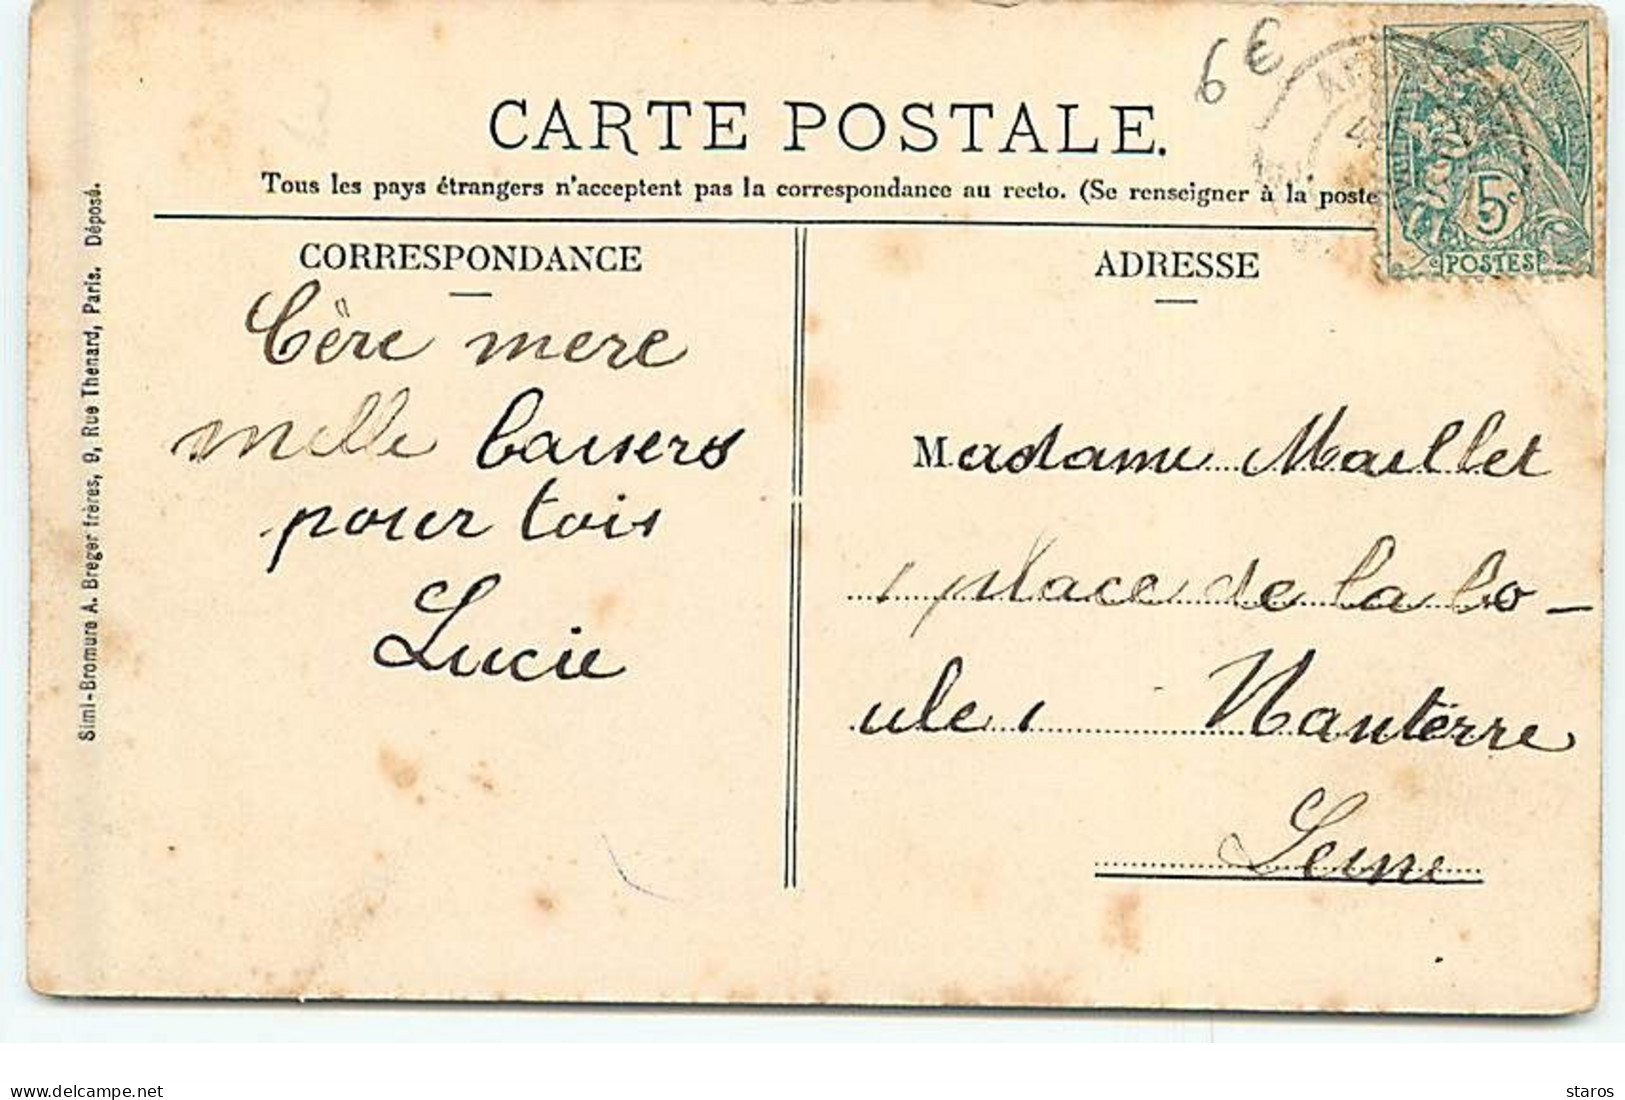 6 €
CARTE POSTALE.
Tous les pays étrangers n'acceptent pas la correspondance au recto. (Se renseigner à la poste
5c
POSTES
Simi-Bromure A. Breger frères, 9, Rue Thenard, Paris. Déposé.
CORRESPONDANCE
Cère mere
mille baisers
pour tois
Lucie
ADRESSE
Madame Maillet
place de la bo-
ule, Nanterre
Seine
delcampe.net
staros